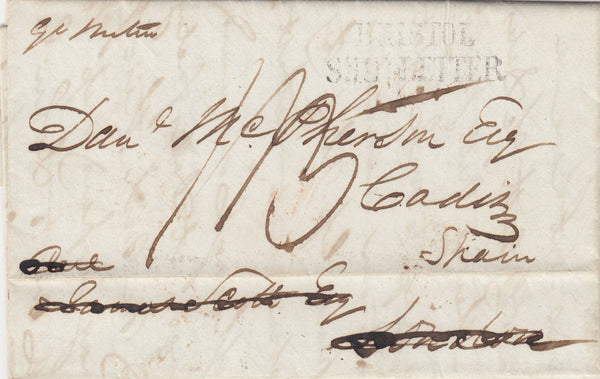 BRISTOL
SHIP LETTER
Danl McPherson Esq
Cadiz
Spain
Scott Esq
London